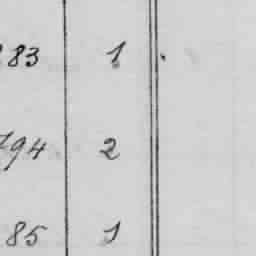 83 1
794 2
85 1